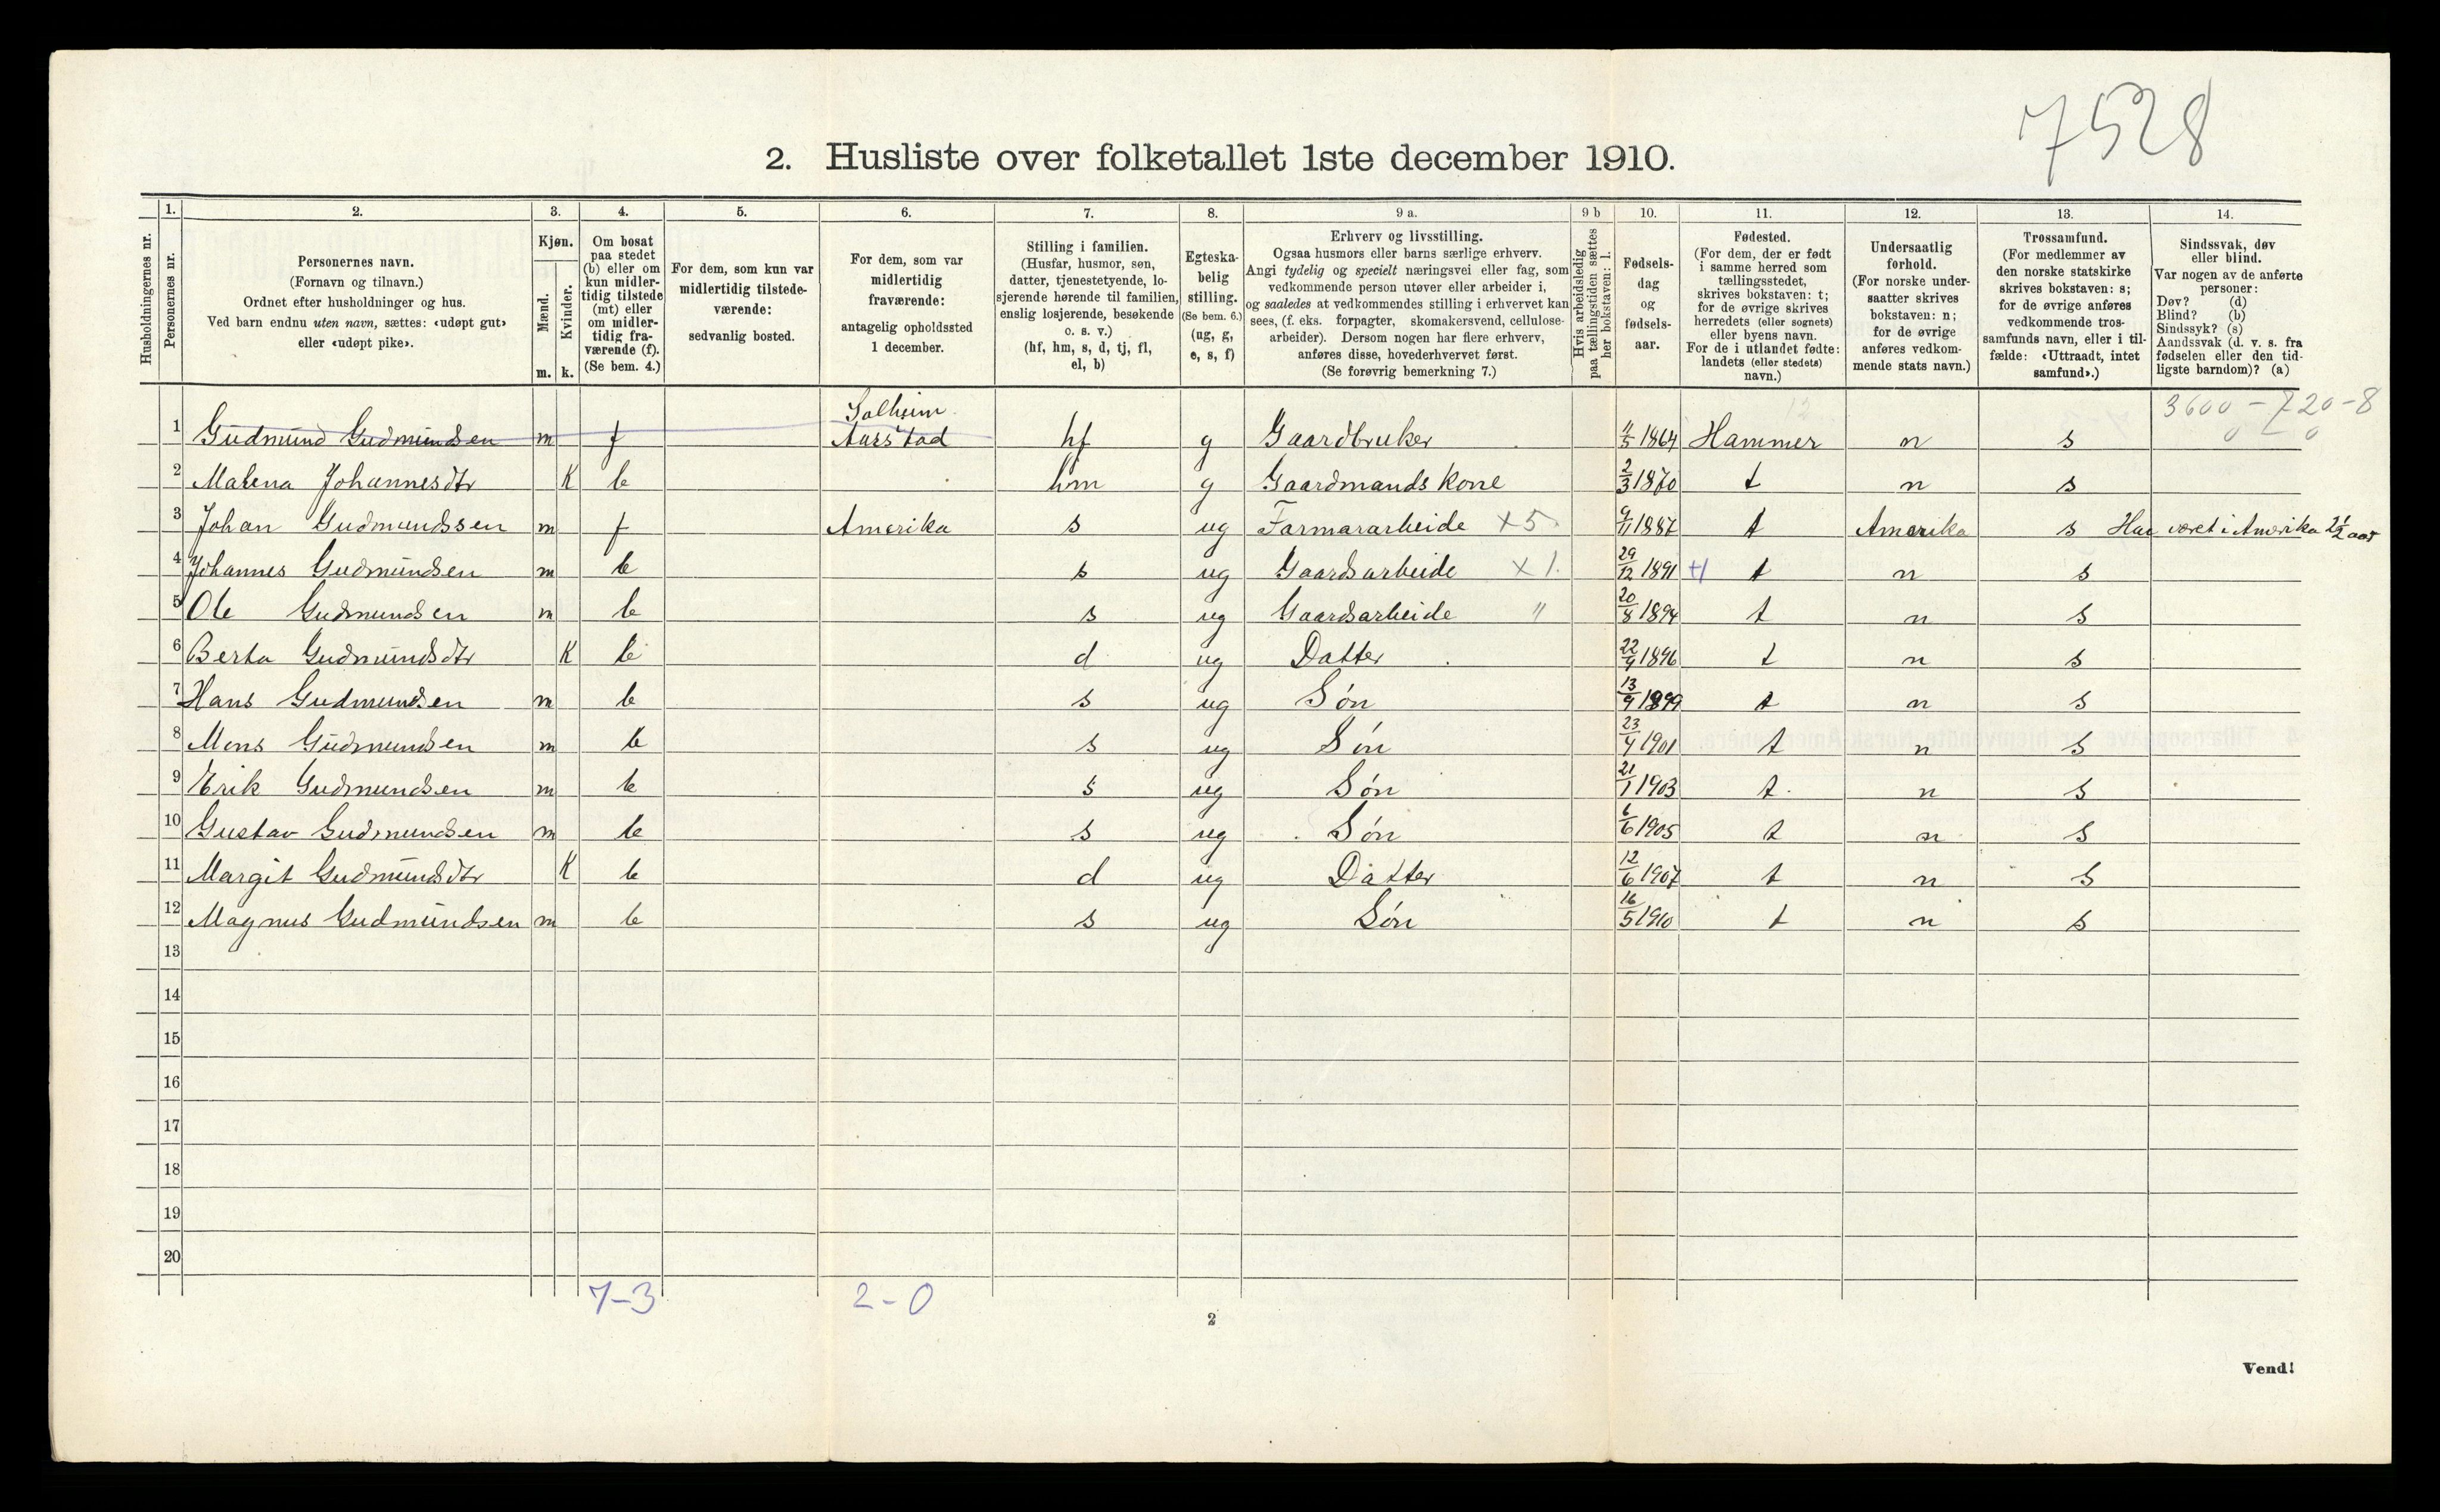 7528
2. Husliste over folketallet 1ste december 1910.
Husholdningernes nr.
1. Personernes nr.
2. Personernes navn. (Fornavn og tilnavn.) Ordnet efter husholdninger og hus. Ved barn endnu uten navn, sættes: «udøpt gut» eller «udøpt pike».
3. Kjøn. Mænd. m. Kvinder. k.
4. Om bosat paa stedet (b) eller om kun midler-tidig tilstede (mt) eller om midler-tidig fra-værende (f). (Se bem. 4.)
5. For dem, som kun var midlertidig tilstede-værende: sedvanlig bosted.
6. For dem, som var midlertidig fraværende: antagelig opholdssted 1 december.
7. Stilling i familien. (Husfar, husmor, søn, datter, tjenestetyende, lo-sjerende hørende til familien, enslig losjerende, besøkende o. s. v.) (hf, hm, s, d, tj, fl, el, b)
8. Egteska-belig stilling. (Se bem. 6.) (ug, g, e, s, f)
9 a. Erhverv og livsstilling. Ogsaa husmors eller barns særlige erhverv. Angi tydelig og specielt næringsvei eller fag, som vedkommende person utøver eller arbeider i, og saaledes at vedkommendes stilling i erhvervet kan sees, (f. eks. forpagter, skomakersvend, cellulose-arbeider). Dersom nogen har flere erhverv, anføres disse, hovederhvervet først. (Se forøvrig bemerkning 7.)
9 b Hvis arbeidsledig paa tællingstiden sættes her bokstaven: l.
10. Fødsels-dag og fødsels-aar.
11. Fødested. (For dem, der er født i samme herred som tællingsstedet, skrives bokstaven: t; for de øvrige skrives herredets (eller sognets) eller byens navn. For de i utlandet fødte: landets (eller stedets) navn.)
12. Undersaatlig forhold. (For norske under-saatter skrives bokstaven: n; for de øvrige anføres vedkom-mende stats navn.)
13. Trossamfund. (For medlemmer av den norske statskirke skrives bokstaven: s; for de øvrige anføres vedkommende tros-samfunds navn, eller i til-fælde: «Uttraadt, intet samfund».)
14. Sindssvak, døv eller blind. Var nogen av de anførte personer: Døv? (d) Blind? (b) Sindssyk? (s) Aandssvak (d. v. s. fra fødselen eller den tid-ligste barndom)? (a)
12 3600 - 720-8
0 - 0
Solheim
1 Gudmund Gudmundsen m f Aarstad hf g Gaardbruker 11/5 1864 Hammer n s
2 Malena Johannesdtr K b hm g Gaardmands kone 2/3 1870 t n s
3 Johan Gudmundssen m f Amerika s ug Farmararbeide x5 9/11 1887 t Amerika s Har været i Amerika 2 1/2 aar
4 Johannes Gudmundsen m b s ug Gaardsarbeide x 1. 29/12 1891 +1 t n s
5 Ole Gudmundsen m b s ug Gaardsarbeide " 20/8 1894 t n s
6 Berta Gudmundsdtr K b d ug Datter 22/9 1896 t n s
7 Hans Gudmundsen m b s ug Søn 13/9 1899 t n s
8 Mons Gudmundsen m b s ug Søn 23/4 1901 t n s
9 Erik Gudmundsen m b s ug Søn 21/1 1903 t n s
10 Gustav Gudmundsen m b s ug Søn 6/6 1905 t n s
11 Margit Gudmundsdtr K b d ug Datter 12/6 1907 t n s
12 Magnus Gudmundsen m b s ug Søn 16/5 1910 t n s
13
14
15
16
17
18
19
20
7-3 2-0
2
Vend!